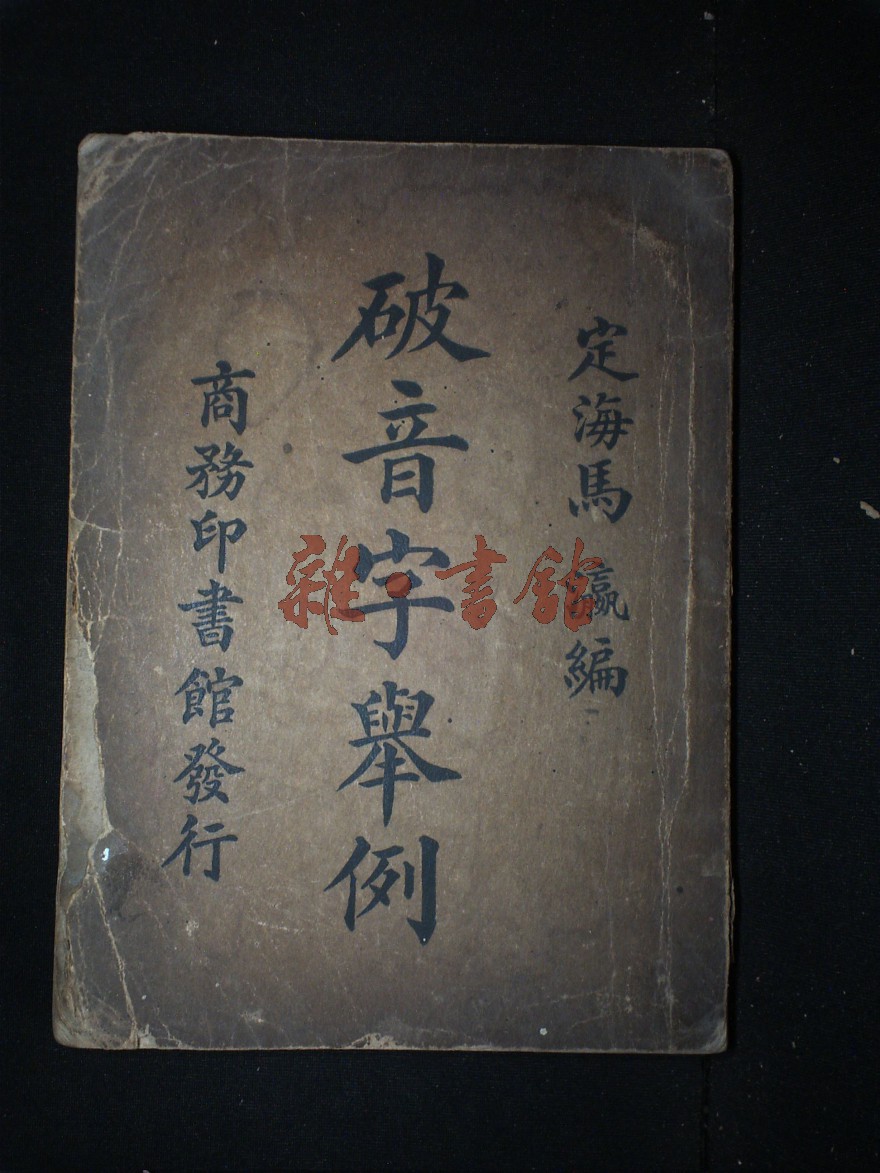 定海馬瀛編
破音字舉例
商務印書館發行
雜·書館